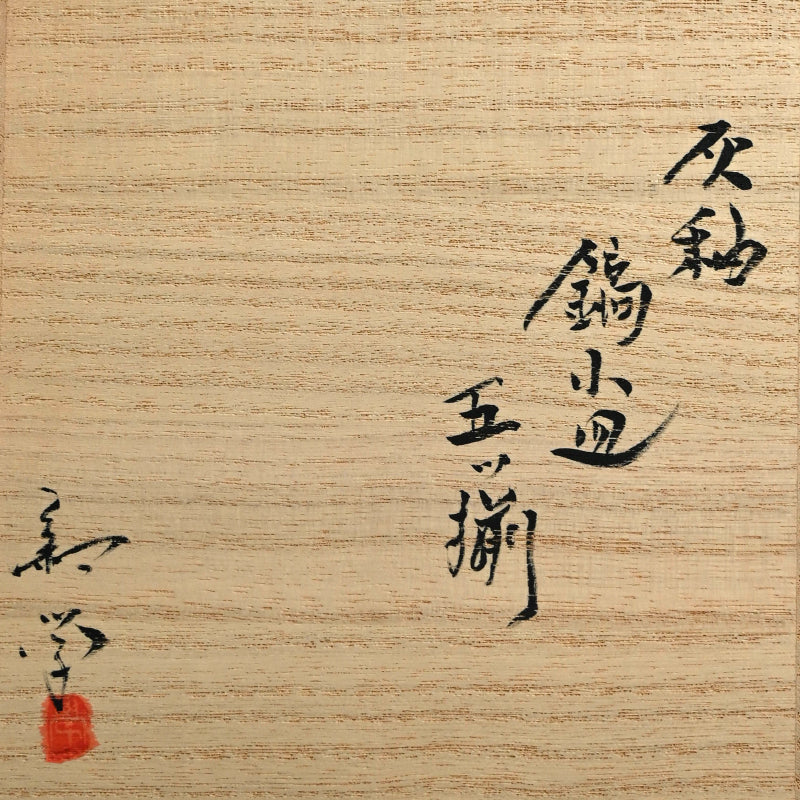 灰釉
鎬小皿
五ッ揃
学